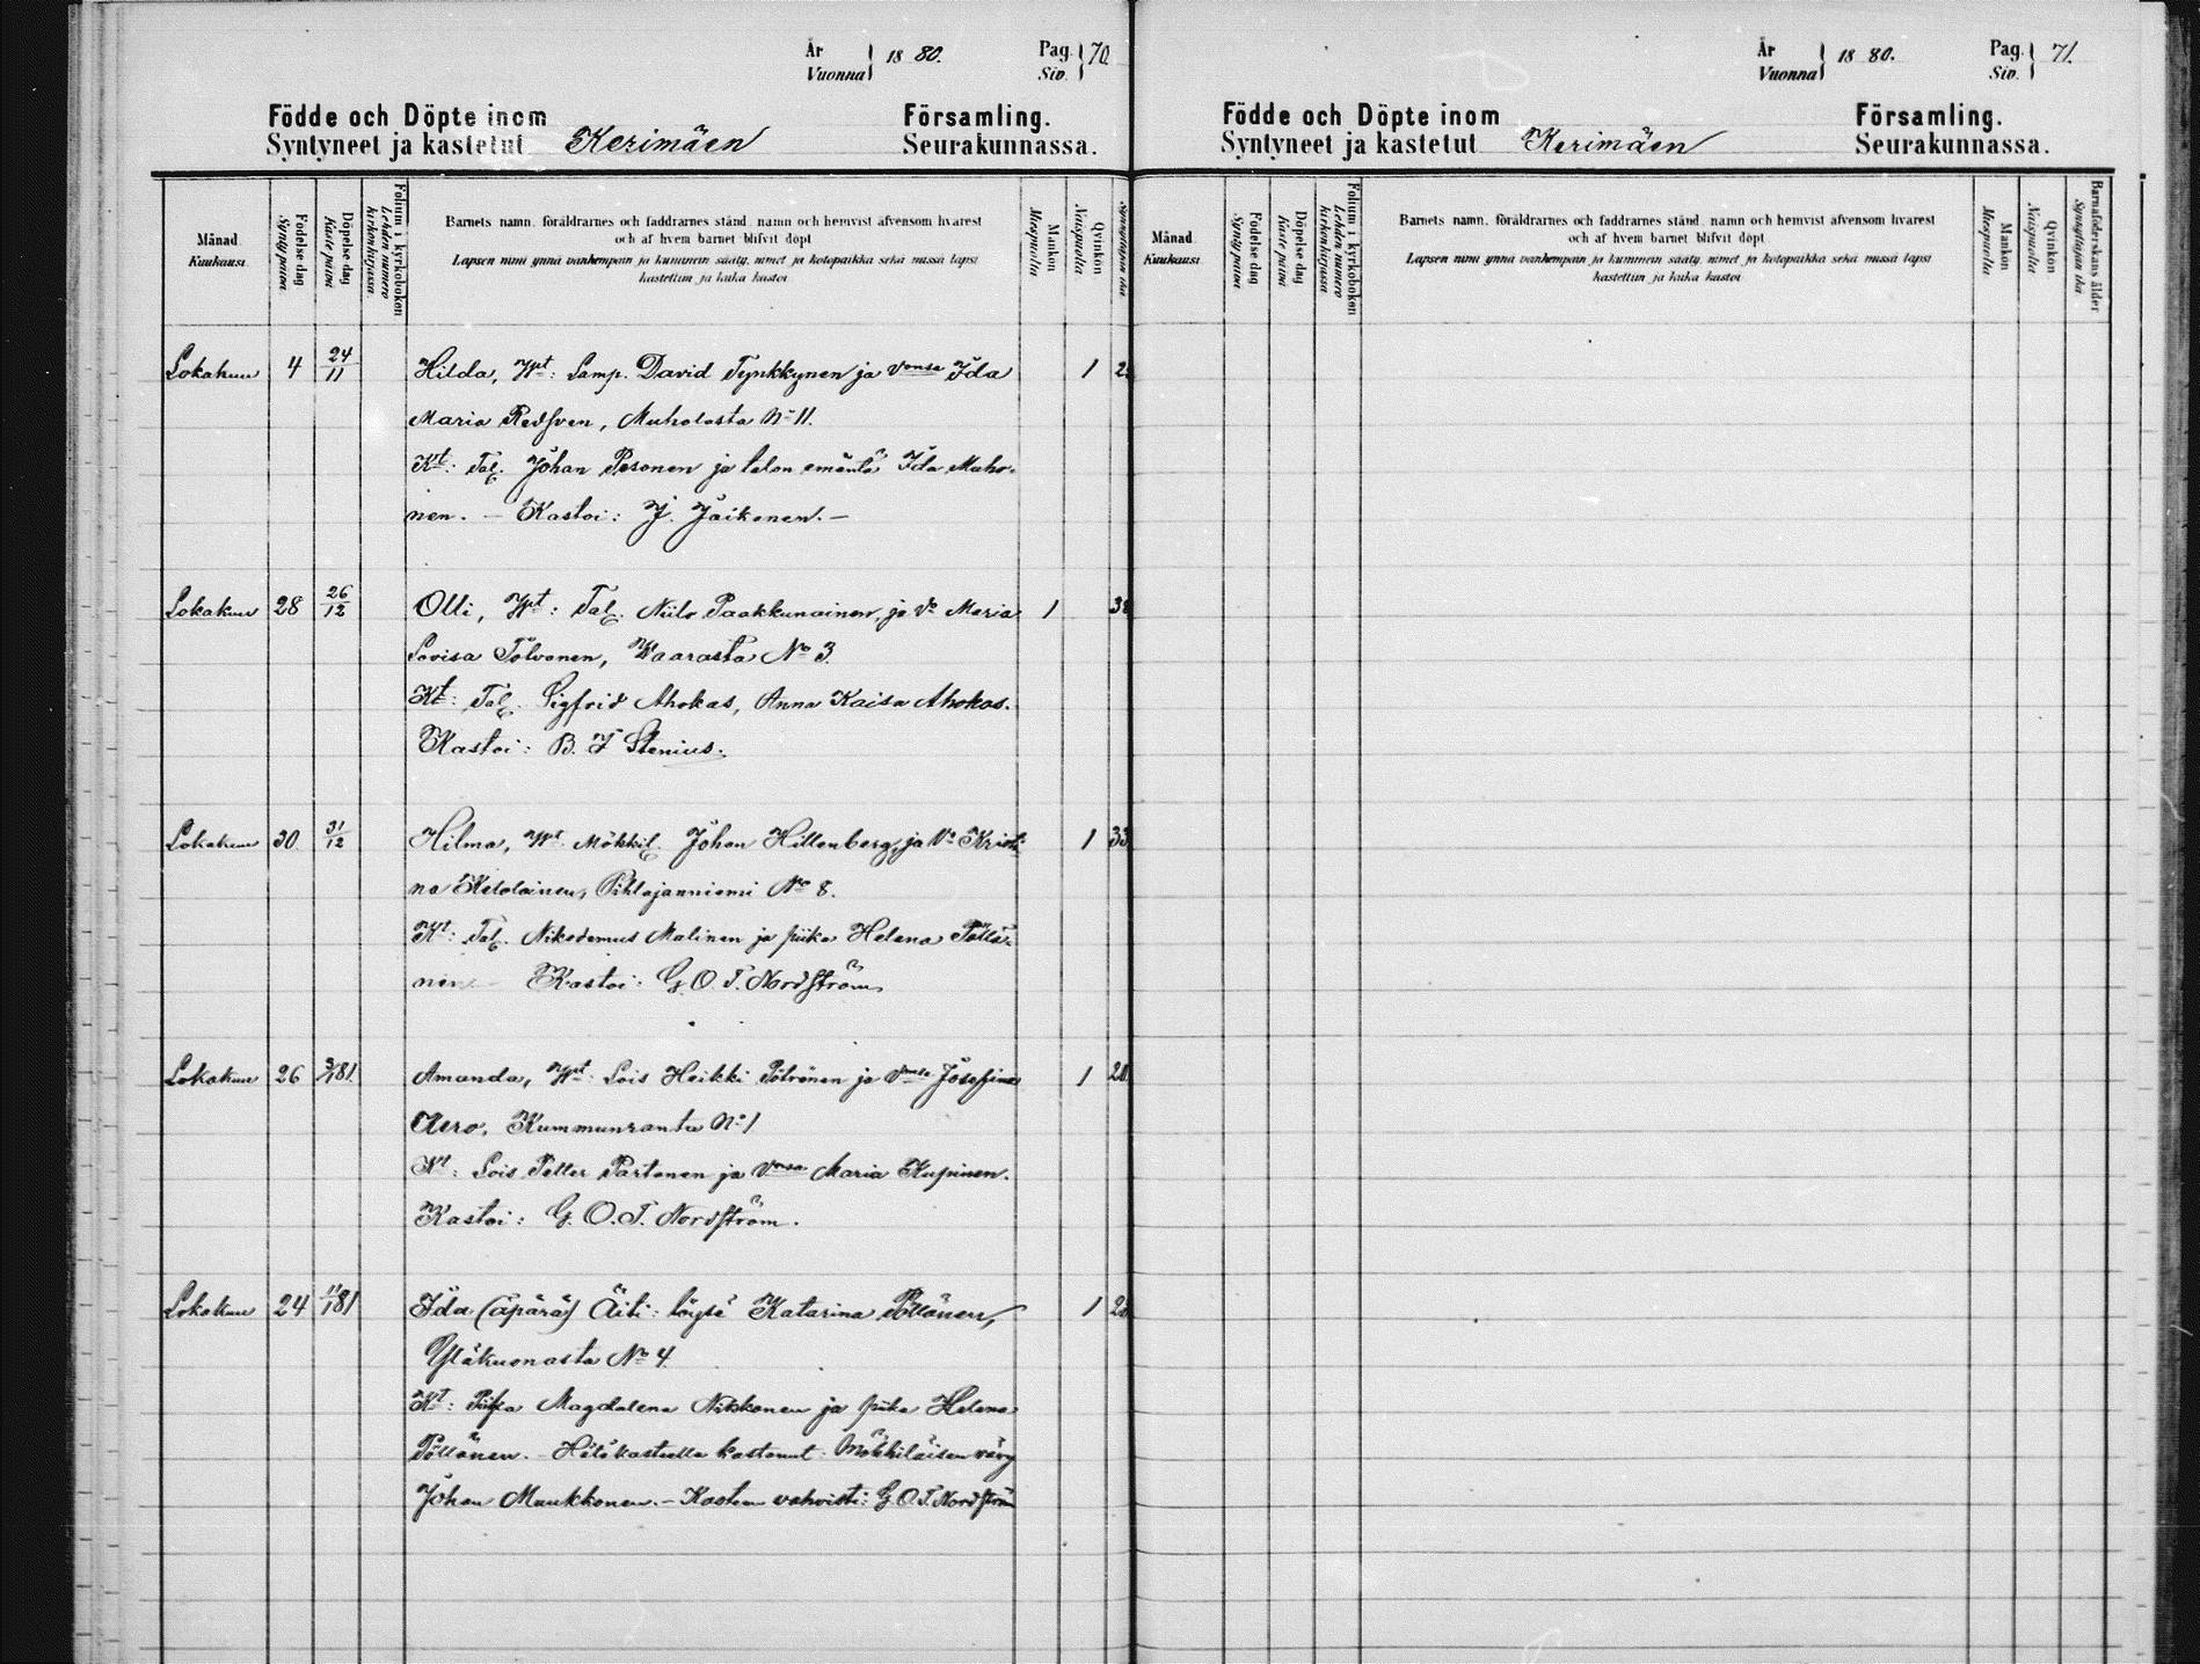 År
Vuonna } 1880.
Pag.
Siv. } 70
Födde och Döpte inom
Syntyneet ja kastetut
Kerimäen
Församling.
Seurakunnassa.
Månad
Kuukausi
Födelse dag
Synty päivä
Döpelse dag
Kaste päivä
Folium i kyrkoboken
Lehden numero
kirkonkirjassa
Barnets namn, föräldrarnes och faddrarnes stånd, namn och hemvist äfvensom hvarest
och af hvem barnet blifvit döpt
Lapsen nimi ynnä vanhempain ja kummein sääty, nimet ja kotopaikka sekä missä lapsi
kastettiin ja kuka kastoi
Mankön
Miespuolia
Qvinkön
Naispuolia
Synnyttäjän ikä
Lokakuu 4 24/11 Hilda, Vpt: Lamp. David Tynkkynen ja Vonsa Ida 1
Maria Redsven, Muholasta No 11.
Kt: Tal. Johan Pesonen ja talon emäntä Ida Muho-
nen. — Kastoi: J. Jäikonen. —
Lokakuu 28 26/12 Olli, Vpt: Tal. Niilo Paakkunainen, ja Vo Maria 1
Lovisa Tolvanen, Waarasta No 3.
Kt: Tal. Sigfrid Ahokas, Anna Kaisa Ahokas.
Kastoi: B. J Stenius.
Lokakuu 30 31/12 Hilma, Vpt. Mökkil. Johan Hillenberg, ja Vo Kristi- 1 33
na Ketolainen, Pihlajanniemi No 8.
Kt: Tal. Nikodemus Malinen ja piika Helena Pöllä-
nen — Kastoi: G. O. T. Nordström
Lokakuu 26 3/1 81. Amanda, Vpt: Lois Heikki Pitrönen ja Vonsa Josefina 1 20.
Aero, Kummunranta No 1
Kt: Lois Petter Partanen ja Vonsa Maria Kupinen.
Kastoi: G. O. T. Nordström.
Lokakuu 24 11/1 81 Ida (äpärä) Äiti: löysä Katarina Pöllänen, 1
Yläkuonasta No 4.
Kt: Piika Magdalena Nikkonen ja piika Helena
Pöllänen. — Hätäkasteella kastanut: Mökkiläisen vävy
Johan Muukkonen. — Kasteen vahvisti: G. O. T. Nordström
År
Vuonna } 1880.
Pag.
Siv. } 71.
Födde och Döpte inom
Syntyneet ja kastetut
Kerimäen
Församling.
Seurakunnassa.
Månad
Kuukausi
Födelse dag
Synty päivä
Döpelse dag
Kaste päivä
Folium i kyrkoboken
Lehden numero
kirkonkirjassa
Barnets namn, föräldrarnes och faddrarnes stånd, namn och hemvist äfvensom hvarest
och af hvem barnet blifvit döpt
Lapsen nimi ynnä vanhempain ja kummein sääty, nimet ja kotopaikka sekä missä lapsi
kastettiin ja kuka kastoi
Mankön
Miespuolia
Qvinkön
Naispuolia
Barnaföderskans ålder
Synnyttäjän ikä